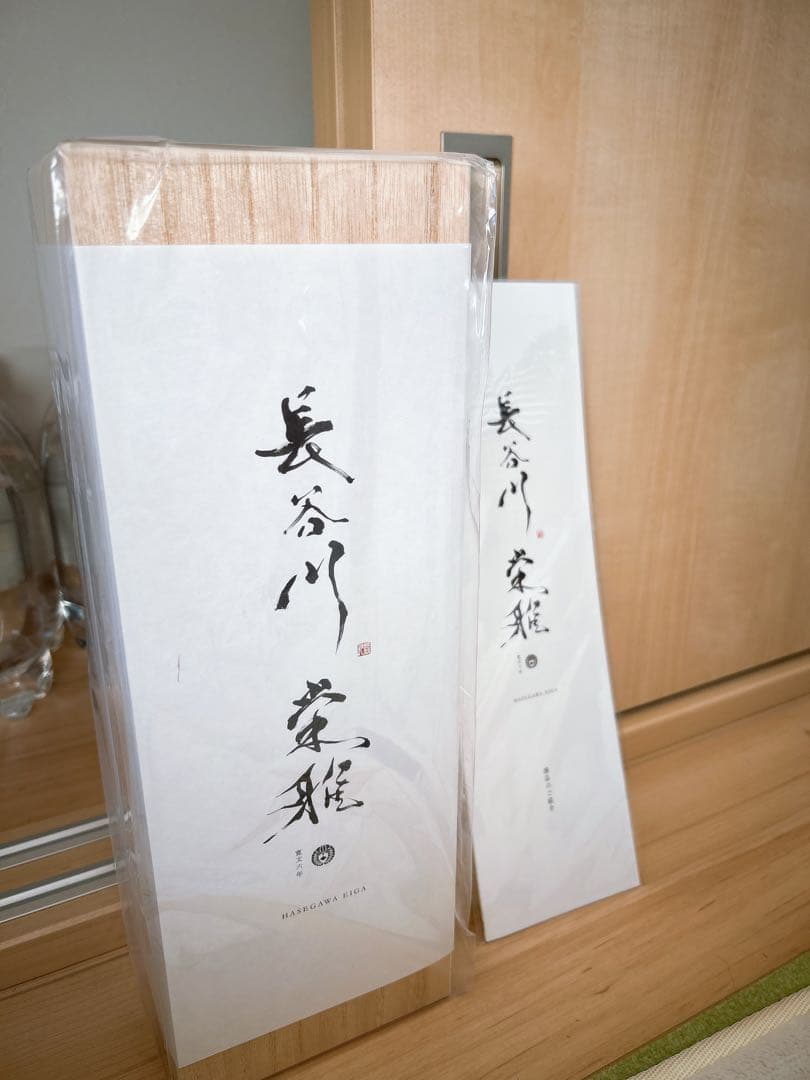 長谷川
榮雅
寛文六年
HASEGAWA EIGA
長谷川
榮雅
寛文六年
HASEGAWA EIGA